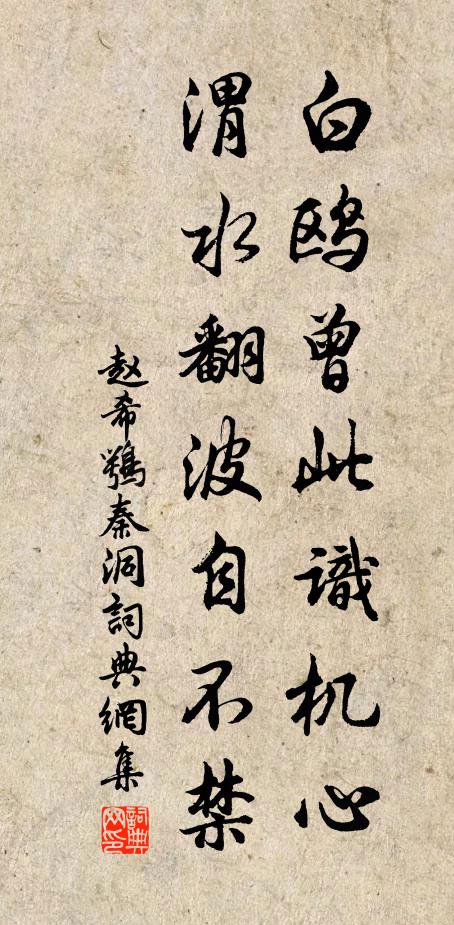 白鸥曾此識机心
渭水翻波自不禁
赵希鵎秦洞詞典網集
詞典网印